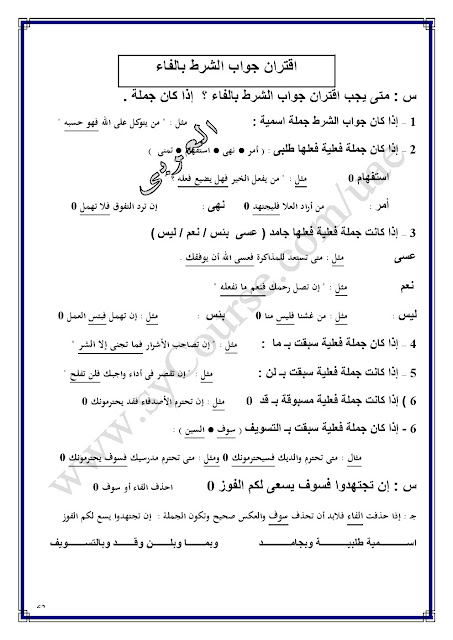 اقتران جواب الشرط بالفاء
س : متى يجب اقتران جواب الشرط بالفاء ؟ إذا كان جملة .
1 – إذا كان جواب الشرط جملة اسمية : مثل : " من يتوكل على الله فهو حسبه "
2 – إذا كان جملة فعلية فعلها طلبى : ( أمر ● نهى ● استفهام ● تمنى )
استفهام 0 مثل : " من يفعل الخير فهل يضيع فعله ؟
أمر : من أراد العلا فليجتهد 0 نهى : إن ترد التفوق فلا تهمل 0
3 – إذا كانت جملة فعلية فعلها جامد ( عسى بنس / نعم / ليس )
عسى مثل : متى تستعد للمذاكرة فعسى الله أن يوفقك .
نعم مثل : " إن تصل رحمك فنعم ما تفعله "
ليس : مثل : من غشنا فليس منا 0 بنس : مثل : إن تهمل فبنس العمل 0
4 – إذا كان جملة فعلية سبقت بـ ما : مثل : " إن تصاحب الأشرار فما تجنى إلا الشر "
5 – إذا كانت جملة فعلية سبقت بـ لن : مثل : " إن تقصر فى أداء واجبك فلن تفلح "
6 ) إذا كانت جملة فعلية مسبوقة بـ قد 0 مثل : إن تحترم الأصدقاء فقد يحترمونك 0
6 - إذا كان جملة فعلية سبقت بـ التسويف ( سوف ● السين ) :
مثال : متى تحترم والديك فسيحترمونك 0 ومثل : متى تحترم مدرسيك فسوف يحترمونك 0
س : إن تجتهدوا فسوف يسعى لكم الفوز 0 احذف الفاء أو سوف 0
جـ : إذا حذفت الفاء فلابد أن تحذف سوف والعكس صحيح وتكون الجملة : إن تجتهدوا يسع لكم الفوز
اسـمية طلبيـة وبجامـد وبمـا وبلـن وقـد وبالتسـويف
www.syCourse.com/uae